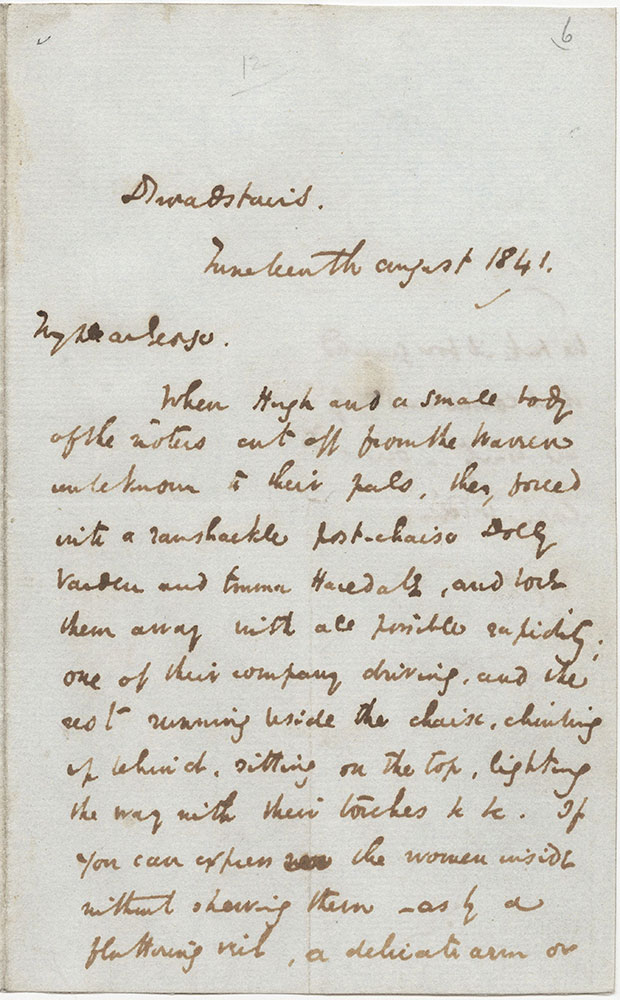 6
12
Broadstairs.
Nineteenth August 1841.
My Dear George.
When Hugh and a small body
of the rioters cut off from the Warren
unbeknown to their pals, they forced
into a ramshackle post-chaise Dolly
Varden and Emma Haredale, and bore
them away with all possible rapidity;
one of their company driving, and the
rest running beside the chaise, climbing
up behind, sitting on the top, lighting
the way with their torches &c &c. If
you can express the women inside
without shewing them – as by a
fluttering veil, a delicate arm or